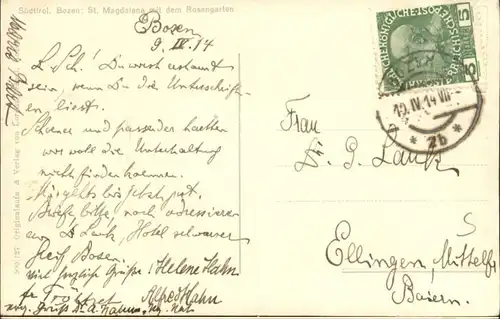 Südtirol. Bozen: St. Magdalena mit dem Rosengarten
Bozen
9. IV. 14
L. Sch.! Du wirst erstaunt
sein, wenn Du die Unterschrif-
ten liest.
Schöner und passender haetten
wir wohl die Unterhaltung
nicht finden koennen.
Mir gehts bis jetzt gut.
Briefe bitte, noch adressieren
an Lauk, Hotel schwarzer
Greif, Bozen.
viel herzliche Grüße! Helene Hahn
Alfred Hahn
5
5
10. IV. 14
* 2b *
Frau
Dr. Lauk
Ellingen, Mittelfr.
Baiern.